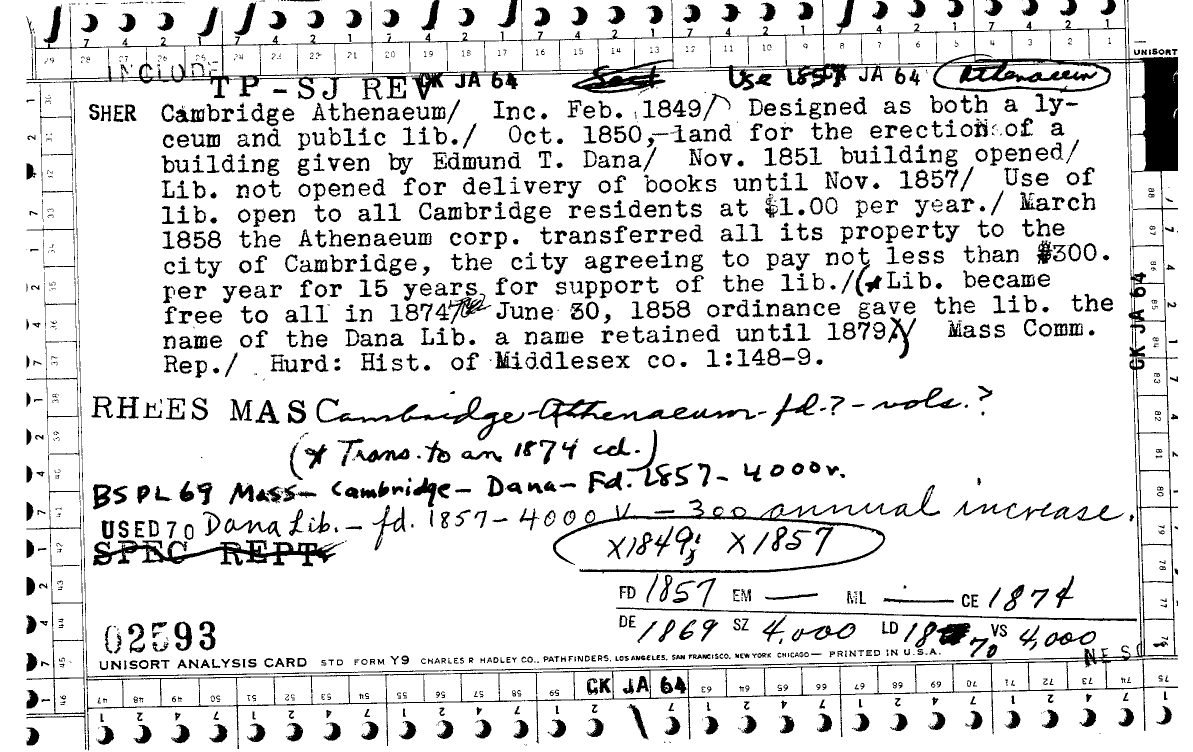 INCLUDE
TP-SJ REV CK JA 64 Use 1857 JA 64 Athenaeum
UNISORT
SHER Cambridge Athenaeum/ Inc. Feb. 1849/ Designed as both a ly-
ceum and public lib./ Oct. 1850, land for the erection of a
building given by Edmund T. Dana/ Nov. 1851 building opened/
Lib. not opened for delivery of books until Nov. 1857/ Use of
lib. open to all Cambridge residents at $1.00 per year./ March
1858 the Athenaeum corp. transferred all its property to the
city of Cambridge, the city agreeing to pay not less than $300.
per year for 15 years for support of the lib./(* Lib. became
free to all in 1874/ June 30, 1858 ordinance gave the lib. the
name of the Dana Lib. a name retained until 1879)/ Mass Comm.
Rep./ Hurd: Hist. of Middlesex co. 1:148-9.
CK JA 64
RHEES MAS Cambridge-Athenaeum-fd.?-vols.?
(* Trans. to an 1874 cd.)
BSPL69 Mass-Cambridge-Dana-Fd. 1857-4000v.
USED70 Dana Lib.-fd. 1857-4000 V.-300 annual increase.
SPEC REPT
X1849; X1857
FD 1857 EM — ML — CE 1874
DE 1869 SZ 4,000 LD 1870 VS 4,000
02593
NE SC
UNISORT ANALYSIS CARD STD FORM Y9 CHARLES R HADLEY CO., PATHFINDERS, LOS ANGELES, SAN FRANCISCO, NEW YORK CHICAGO— PRINTED IN U.S.A.
CK JA 64